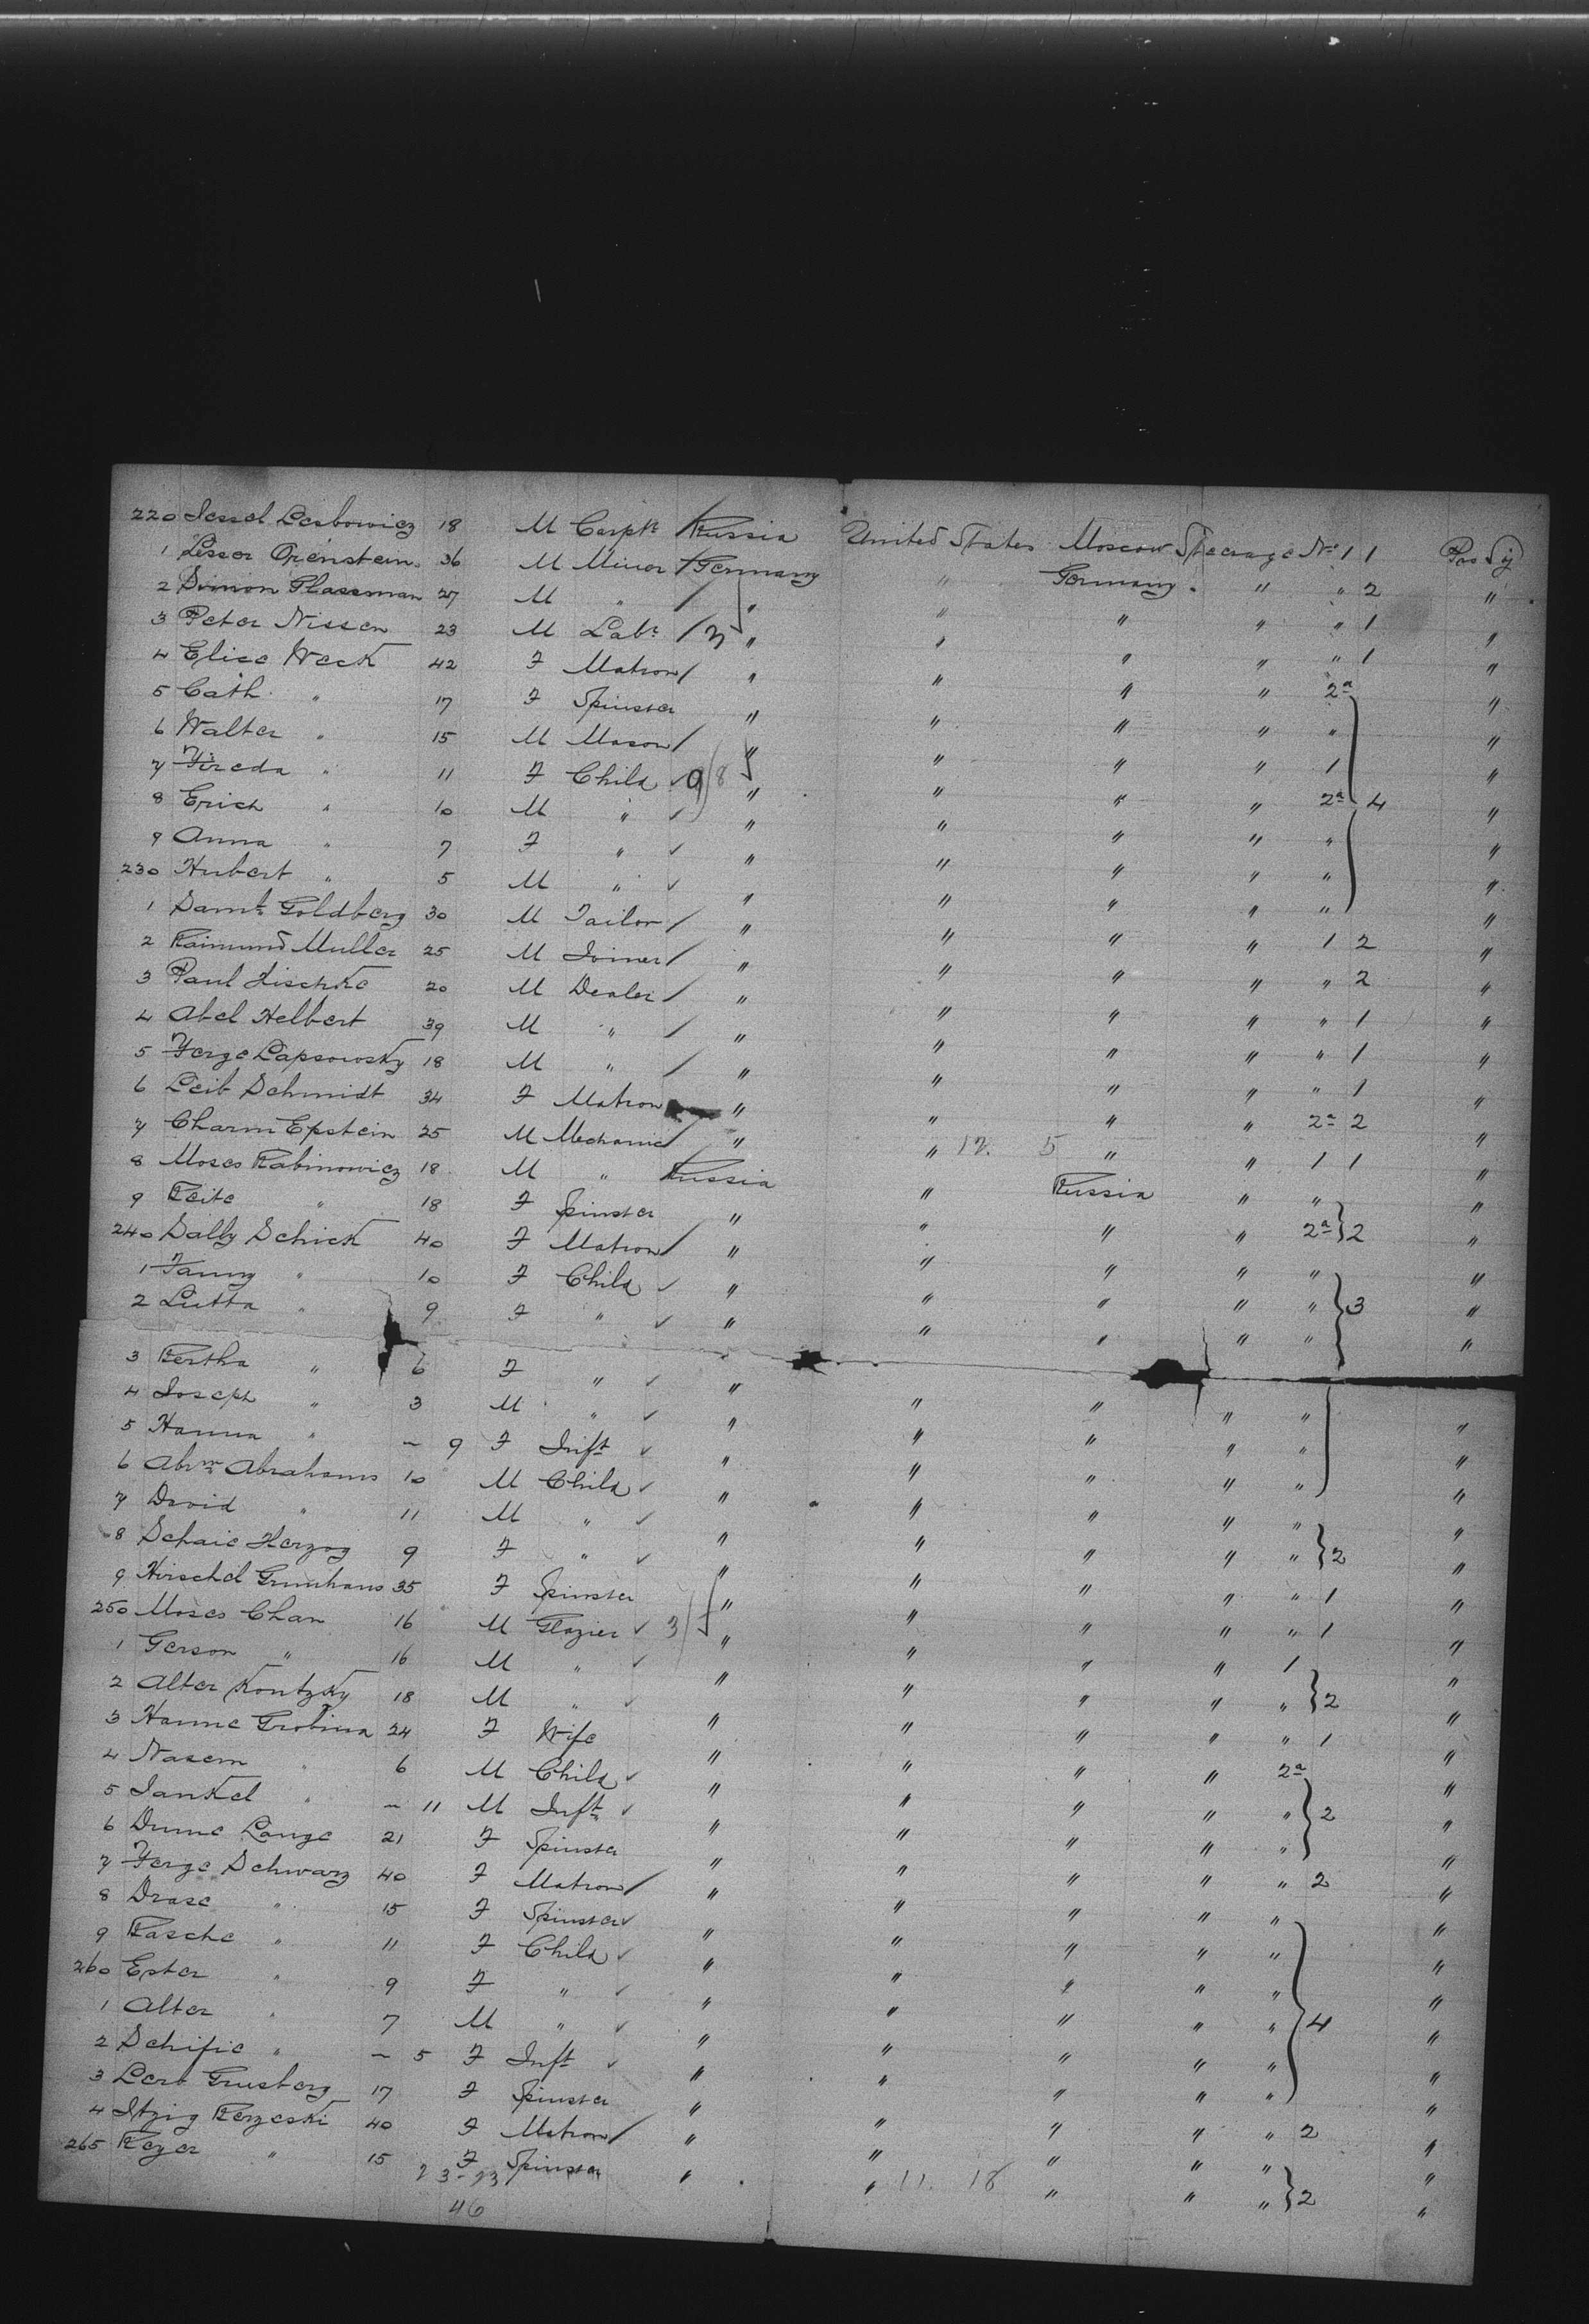 220 Jessel Lesbowicz 18 M Carptr / Russia United States Moscow Steerage No 1 1 Pas Sj
1 Lesser Orenstein 36 M Minor / Germany " Germany . " " 2 "
2 Simon Glassman 27 M " / " " " " " 1 "
3 Peter Nissen 23 M Labr / 3 " " " " " 1 "
4 Elise Weck 42 F Matron / " " " " 2a "
5 Cath. " 17 F Spinster " " " " " "
6 Walter " 15 M Mason / " " " " 1 "
7 Freda " 11 F Child ✓ 9 8 " " " " 2a 4 "
8 Erich " 10 M " ✓ " " " " " "
9 Anna " 7 F " ✓ " " " " " "
230 Hubert " 5 M " ✓ " " " " " "
1 Saml Goldberg 30 M Tailor / " " " " 1 2 "
2 Raimund Muller 25 M Joiner / " " " " " 2 "
3 Paul Lischke 20 M Dealer / " " " " " 1 "
4 Abel Helbert 39 M " / " " " " " 1 "
5 Ferge Lapsowsky 18 M " / " " " " " 1 "
6 Leib Schmidt 34 F Matron " " " " 2a 2 "
7 Charm Epstein 25 M Mechanic / " " 12. 5 " " 1 1 "
8 Moses Rabinowicz 18 M " Russia " Russia " " "
9 Reite " 18 F Spinster " " " " 2a } 2 "
240 Sally Schick 40 F Matron / " " " " " "
1 Fanny " 10 F Child ✓ " " " " " 3 "
2 Lutta " 9 F " ✓ " " " " " "
3 Bertha " 6 F " ✓ " " " " " "
4 Joseph " 3 M " ✓ " " " " " "
5 Hanna " – 9 F Inft ✓ " " " " " "
6 Abrm Abrahams 10 M Child ✓ " " " " " "
7 David " 11 M " ✓ " " " " " } 2 "
8 Schaie Herzog 9 F " ✓ " " " " " 1 "
9 Hirschel Grunhaus 35 F Spinster " " " " " 1 "
250 Moses Chan 16 M Glazier ✓ 3 " " " " 1 "
1 Gerson " 16 M " ✓ " " " " " } 2 "
2 Alter Kontzky 18 M " ✓ " " " " " 1 "
3 Hanne Grobina 24 F Wife " " " " 2a "
4 Nasem " 6 M Child ✓ " " " " " } 2 "
5 Jankel " – 11 M Inft ✓ " " " " " "
6 Dume Lange 21 F Spinster " " " " " 2 "
7 Ferge Schwarz 40 F Matron / " " " " " "
8 Drase " 15 F Spinster ✓ " " " " " "
9 Rasche " 11 F Child ✓ " " " " " "
260 Ester " 9 F " ✓ " " " " " } 4 "
1 Alter " 7 M " ✓ " " " " " "
2 Schifie " – 5 F Inft ✓ " " " " " "
3 Grusberg 17 F Spinster " " " " " 2 "
4 Itzig Berzeski 40 F Matron / " " " " " "
265 Reyer " 15 F Spinster " " 11. 18 " " " } 2 "
23-23
46